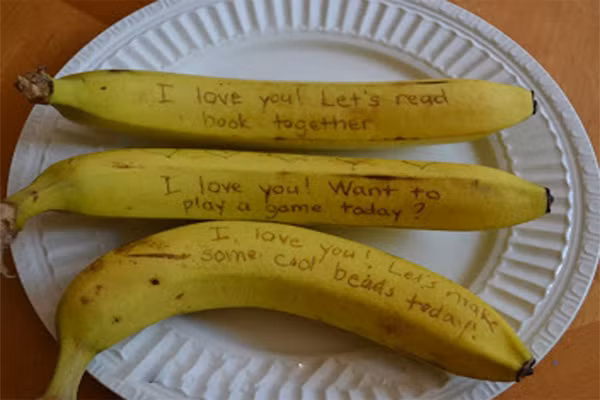 I love you! Let's read
book together
I love you! Want to
play a game today?
I love you! Let's make
some cool beads today!